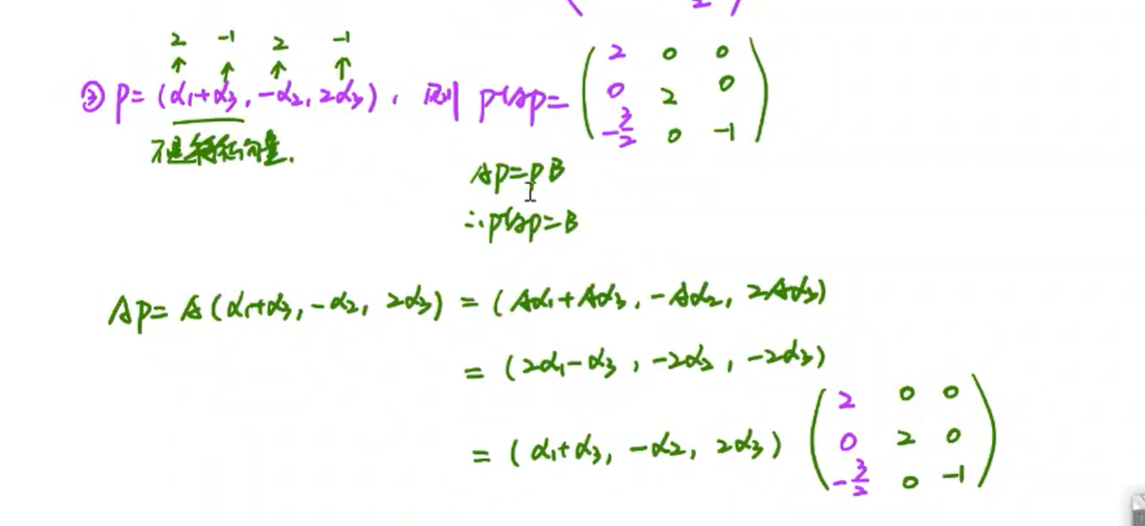 2 -1 2 -1
↑ ↑ ↑ ↑
③ P=(α₁+α₃, -α₂, 2α₃), 则 P⁻¹AP= ( 2 0 0
0 2 0
-3/2 0 -1 )
不是特征向量.
AP=PB
∴P⁻¹AP=B
AP= A(α₁+α₃, -α₂, 2α₃) = (Aα₁+Aα₃, -Aα₂, 2Aα₃)
= (2α₁-α₃, -2α₂, -2α₃)
= (α₁+α₃, -α₂, 2α₃) ( 2 0 0
0 2 0
-3/2 0 -1 )